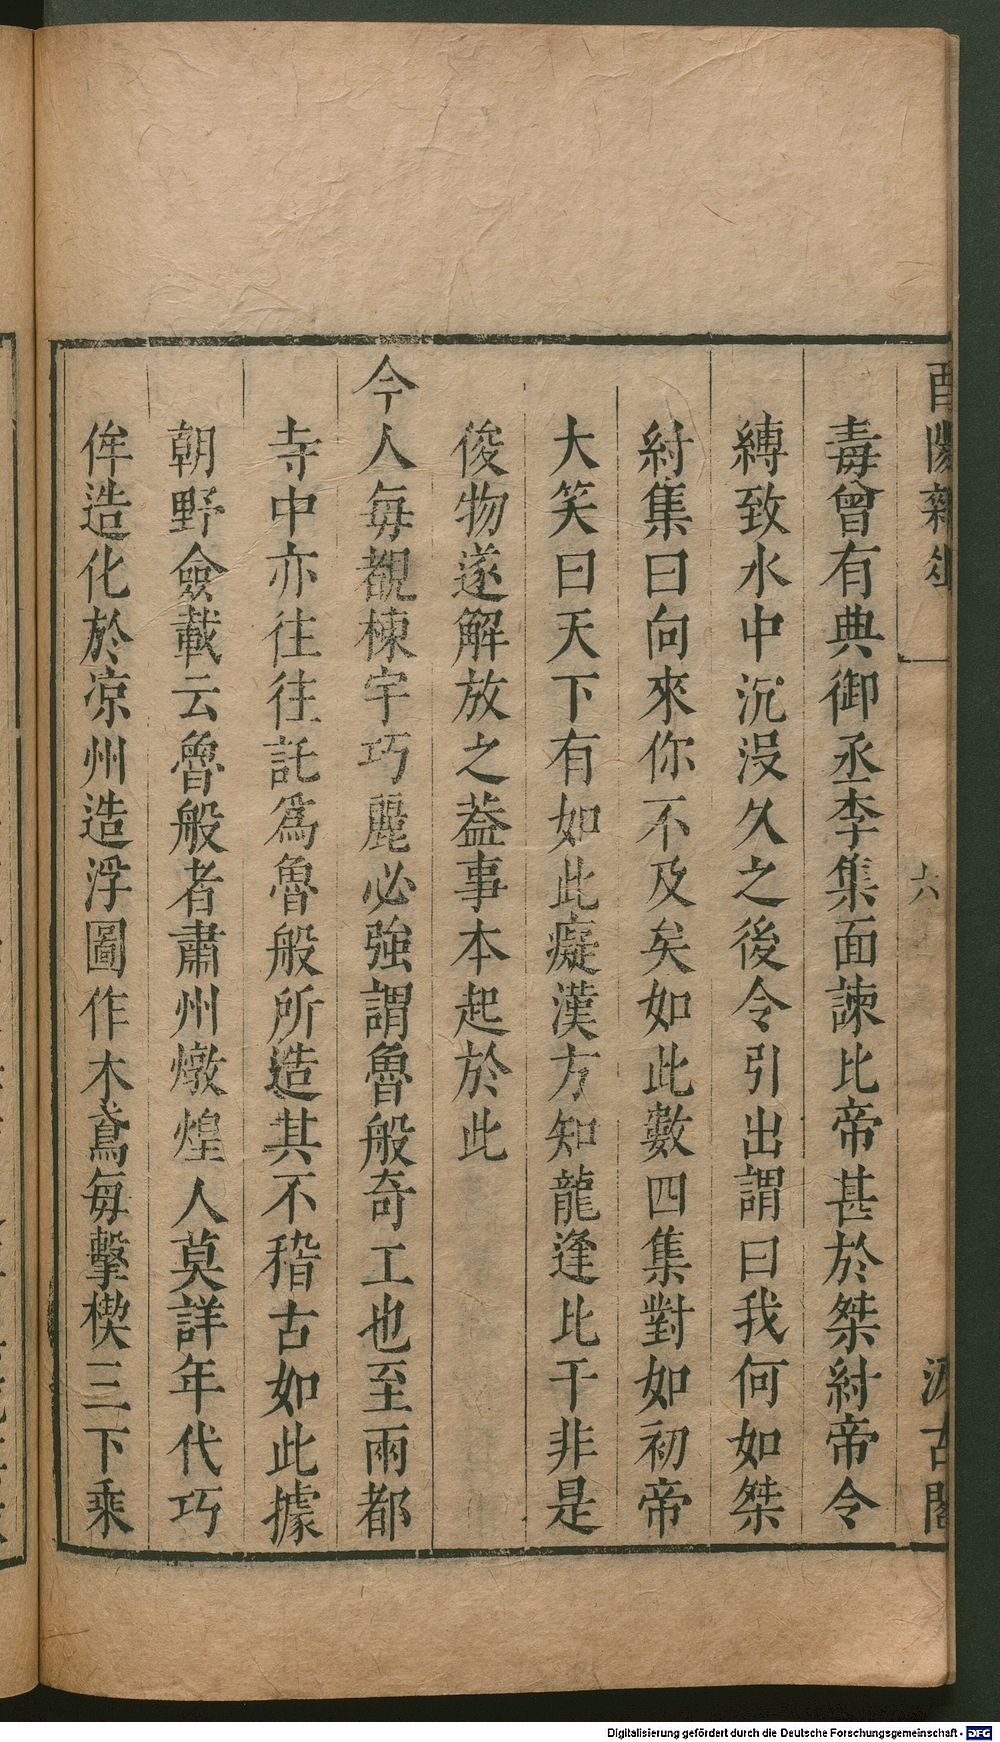 酉陽雜俎
六
汲古閣
毒曾有典御丞李集面諫比帝甚於桀紂帝令
縛致水中沉沒久之後令引出謂曰我何如桀
紂集曰向來你不及矣如此數四集對如初帝
大笑曰天下有如此癡漢方知龍逢比干非是
俊物遂解放之葢事本起於此
今人每覩棟宇巧麗必強謂魯般奇工也至兩都
寺中亦往往託爲魯般所造其不稽古如此據
朝野僉載云魯般者肅州燉煌人莫詳年代巧
侔造化於凉州造浮圖作木鳶每擊楔三下乘
Digitalisierung gefördert durch die Deutsche Forschungsgemeinschaft - DFG